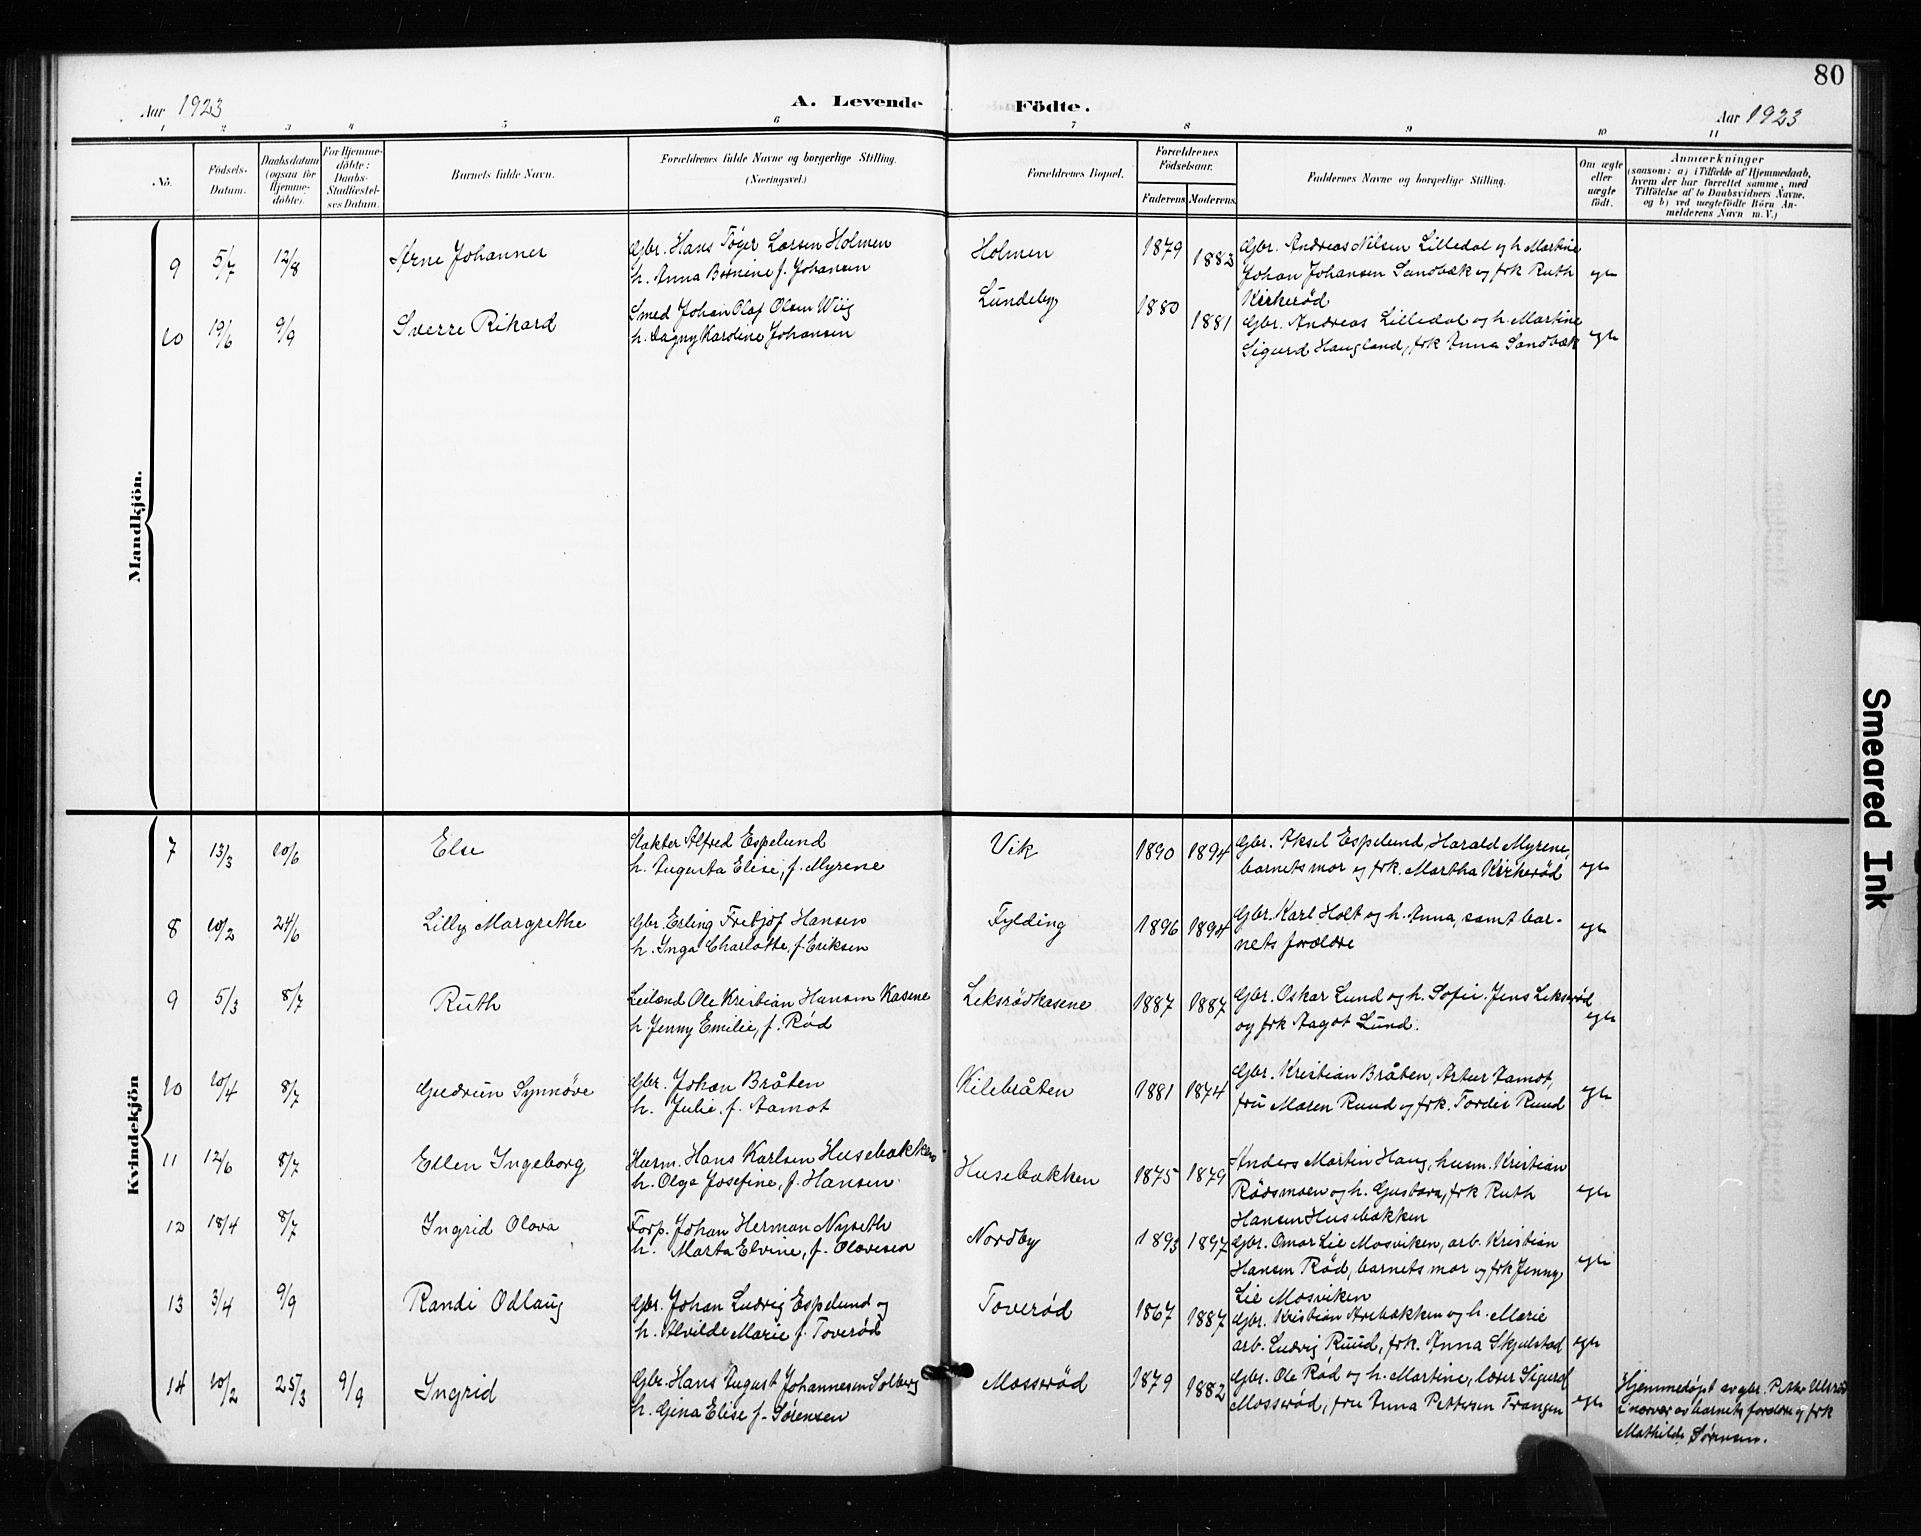 80
Aar 1923
A. Levende Födte.
Aar 1923
1 2 3 4 5 6 7 8 9 10 11
No.
Födsels-
Datum.
Daabsdatum
(ogsaa for
Hjemme-
döbte).
For Hjemme-
döbte:
Daabs-
Stadfæstel-
ses Datum.
Barnets fulde Navn.
Forældrenes fulde Navne og borgerlige Stilling.
(Næringsvei.)
Forældrenes Bopæl.
Forældrenes
Födselsaar.
Faderens. Moderens.
Faddernes Navne og borgerlige Stilling.
Om ægte
eller
uægte
födt.
Anmærkninger
(saasom: a) i Tilfælde af Hjemmedaab,
hvem der har forrettet samme, med
Tilföielse af to Daabsvidners Navne,
og b) ved uægtefödte Börn An-
melderens Navn m. V.)
Mandkjön.
9 5/7 12/8 Arne Johannes
Gbr. Hans Tøger Larsen Holmen
h. Anna Bernine f. Johansen
Holmen 1879 1883
Gbr. Andreas Nilsen Lilledal og h. Martine
Johan Johansen Sandbæk og frk Ruth
Kirkerød
egte
10 19/6 9/9 Sverre Rikard
Smed Johan Olaf Olsen Wiig
h. Dagny Karoline Johansen
Lundeby 1880 1881
Gbr. Andreas Lilledal og h. Martine
Sigurd Haugland, frk Anna Sandbæk
egte
Kvindekjön
7 13/3 10/6 Else
Slakter Alfred Espelund
h. Augusta Elise, f. Myrene
Vik 1890 1894
Gbr. Aksel Espelund, Harald Myrene,
barnets mor og frk. Martha Kirkerød
egte
8 10/2 24/6 Lilly Margrethe
Gbr. Erling Fritjof Hansen
h. Inga Charlotte, f. Eriksen
Fylding 1896 1894
Gbr. Karl Holt og h. Anna, samt bar-
nets forældre
egte
9 5/3 8/7 Ruth
Leilænd Ole Kristian Hansen Kasene
h. Jenny Emilie, f. Rød
Leksrödkasene 1887 1887
Gbr. Oskar Lund og h. Sofie. Jens Leksrød
og frk Aagot Lund.
egte
10 10/4 8/7 Gudrun Synnöve
Gbr. Johan Bråten
h. Julie, f. Aamot
Kilebråten 1881 1874
Gbr. Kristian Bråten, Artur Aamot,
fru Maren Ruud og frk. Tordis Ruud
egte
11 12/6 8/7 Ellen Ingeborg
Husm. Hans Karlsen Husebakken
h. Olga Josefine, f. Hansen.
Husebakken 1875 1879
Anders Martin Haug, husm. Kristian
Rødsmoen og h. Gustava, frk Ruth
Hansen Husebakken
egte
12 18/4 8/7 Ingrid Olava
Forp. Johan Herman Nyseth
h. Marta Elvine, f. Olavesen
Nordby 1893 1897
Gbr. Omar Lie Mosviken, arb. Kristian
Hansen Rød, barnets mor og frk Jenny
Lie Mosviken
egte
13 3/4 9/9 Randi Odlaug
Gbr. Johan Ludvig Espelund og
h. Alvilde Marie f. Toverød
Toverød 1867 1887
Gbr. Kristian Arebakken og h. Marie
arb. Ludvig Ruud, frk. Anna Skjelstad
egte
14 10/2 25/3 9/9 Ingrid
Gbr. Hans August Johannesen Solberg
h. Gina Elise f. Sørensen
Mosserød 1879 1882
Gbr. Ole Rød og h. Martine, lærer Sigurd
Mosserød, fru Anna Pettersen Trangen
egte
Hjemmedøpt av gbr. Petter Ulsrød
i nærvær av barnets forældre og frk
Mathilde Sørensen.
Smeared Ink